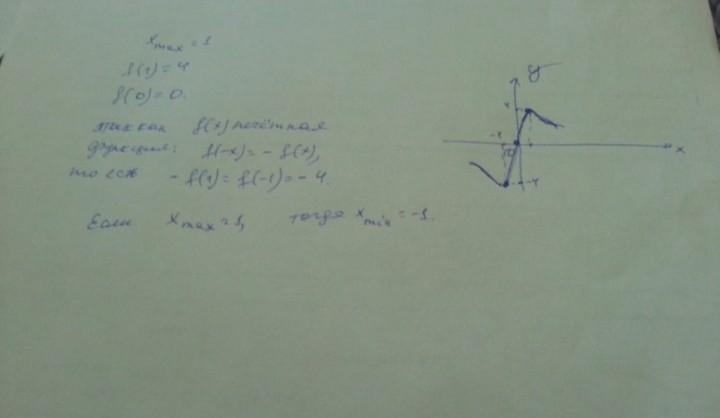 x max = 1
f(1) = 4
f(0) = 0.
так как f(x) нечётная
функция: f(-x) = - f(x),
то есть - f(1) = f(-1) = - 4.
Если x max = 1, тогда x min = -1.
y
4
-1
0
x
-4